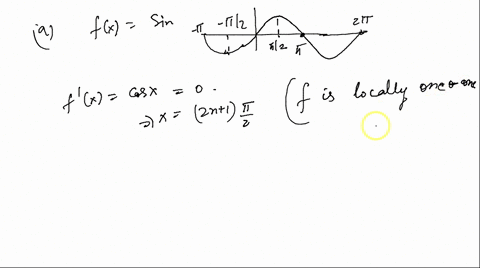 (a) f(x) = Sin
-π -π/2 π/2 π 2π
f'(x) = cosx = 0.
⇒ x = (2n+1) π/2
(f is locally one-one